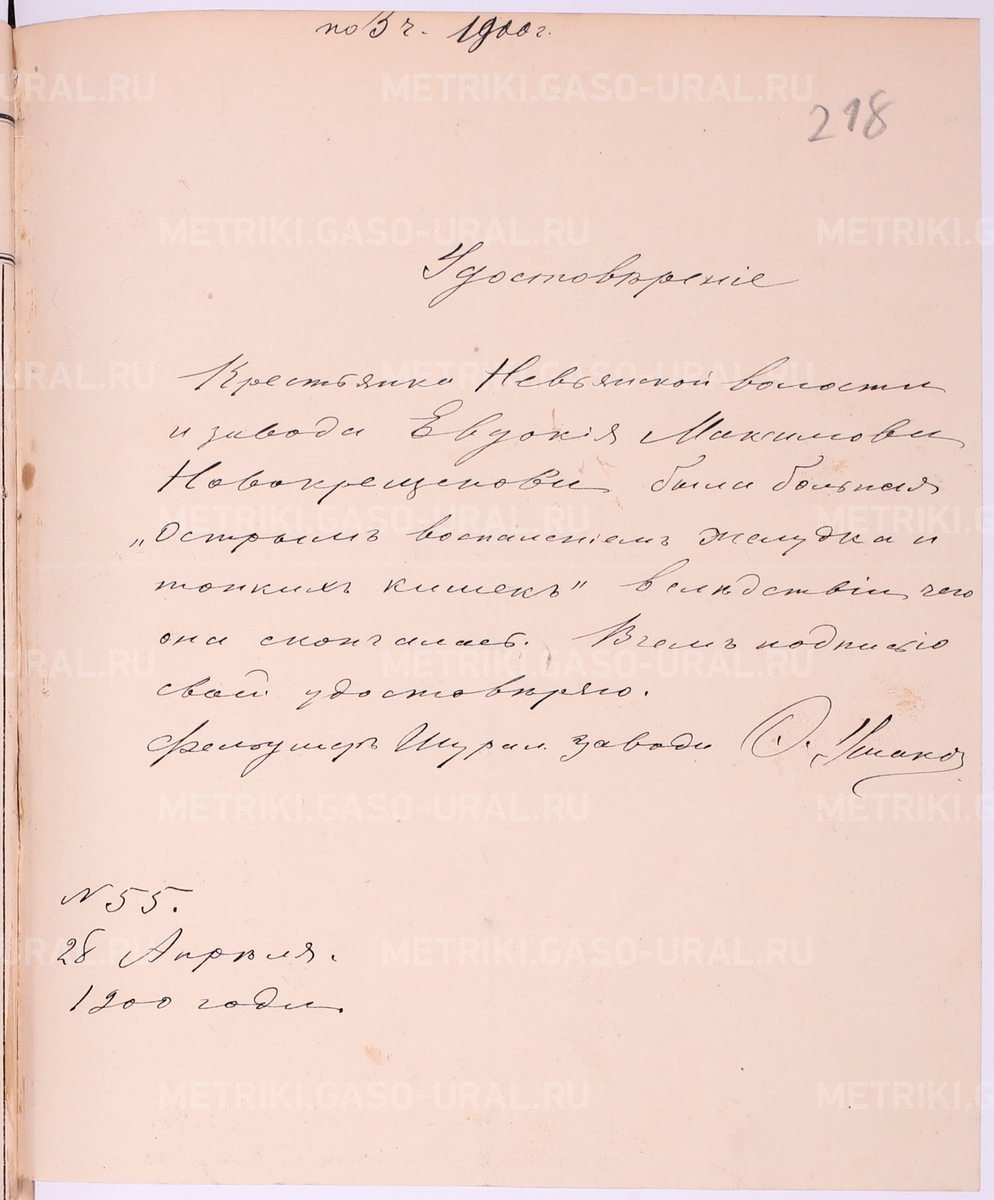 по 3 ч. 1900 г.
218
Удостовѣреніе
Крестьянка Невьянской волости
и завода Евдокія Максимова
Новокрещенова была больная
„Острымъ воспаленіемъ желудка и
тонкихъ кишекъ" вслѣдствіи чего
она скончалась. Въ чемъ подписью
свой удостовѣряю.
Фельдшеръ Шурал. завода Ушаков
N 55.
28 Апрѣля.
1900 года.
METRIKI.GASO-URAL.RU